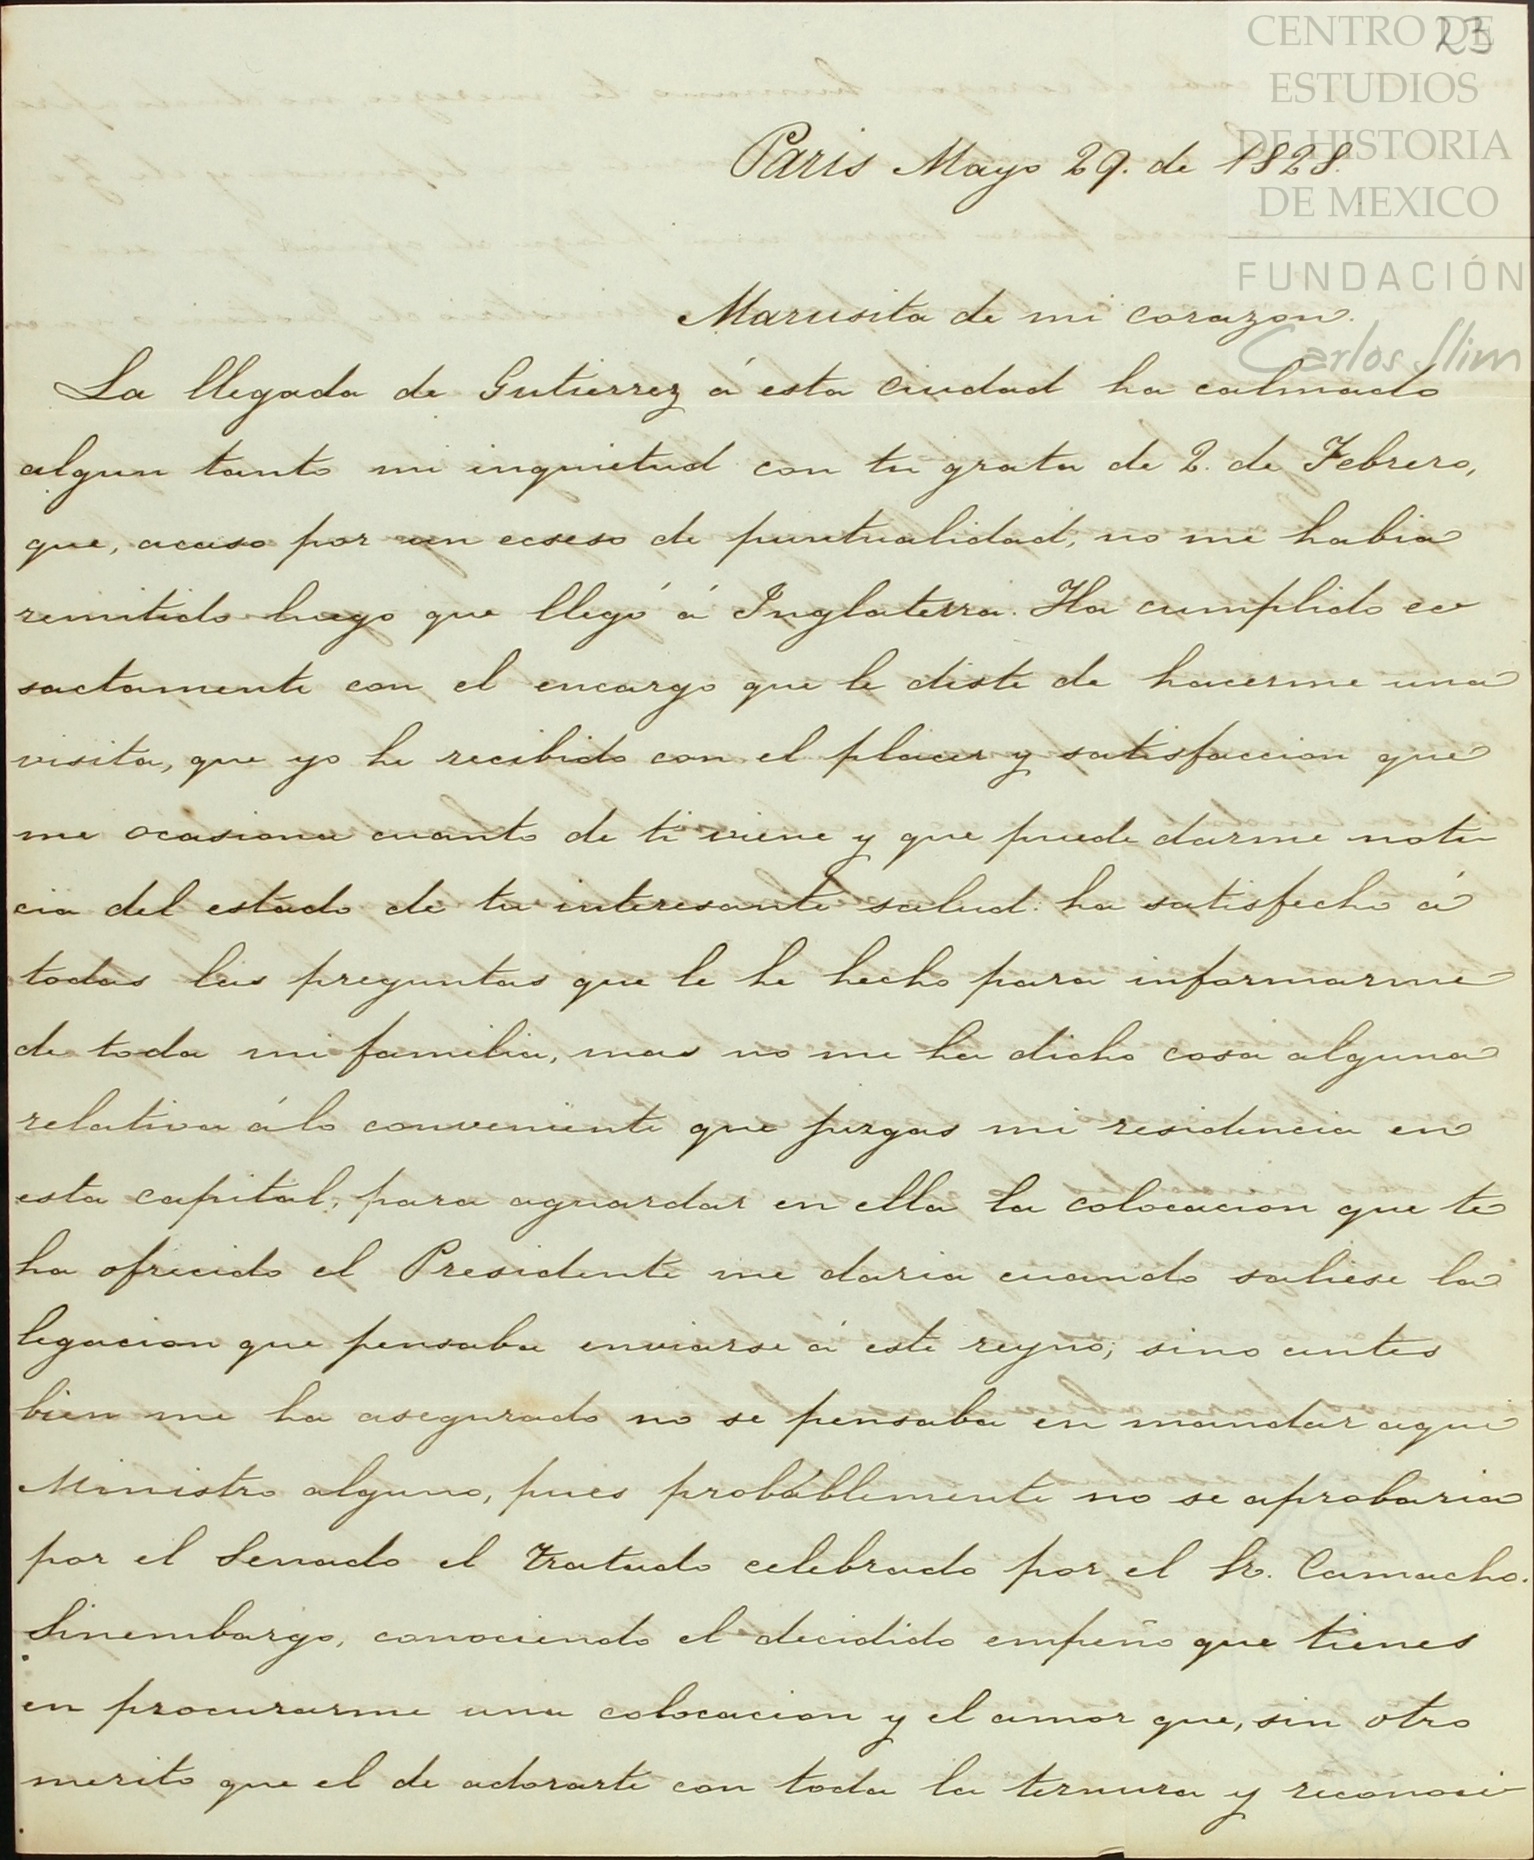 23
CENTRO DE
ESTUDIOS
DE HISTORIA
DE MEXICO
FUNDACIÓN
Carlos Slim
Paris Mayo 29. de 1828.
Marusita de mi corazon.
La llegada de Gutierrez á esta Ciudad ha calmado
algun tanto mi inquietud con tu grata de 2. de Febrero,
que, acaso por un ecseso de puntualidad, no me habia
remitido luego que llegó á Inglaterra. Ha cumplido ec
sactamente con el encargo que le diste de hacerme una
visita, que yo he recibido con el placer y satisfaccion que
me ocasiona cuanto de ti viene y que puede darme noti
cia del estado de tu interesante salud: ha satisfecho á
todas las preguntas que le he hecho para informarme
de toda mi familia, mas no me ha dicho cosa alguna
relativa á lo conveniente que juzgas mi residencia en
esta capital, para aguardar en ella la colocacion que te
ha ofrecido el Presidente me daria cuando saliese la
legacion que pensaba enviarse á este reyno; sino antes
bien me ha asegurado no se pensaba en mandar aqui
Ministro alguno, pues probáblemente no se aprobaria
por el Senado el tratado celebrado por el Sr. Camacho.
Sinembargo, conociendo el decidido empeño que tienes
en procurarme una colocacion y el amor que, sin otro
merito que el de adorarte con toda la ternura y reconoci